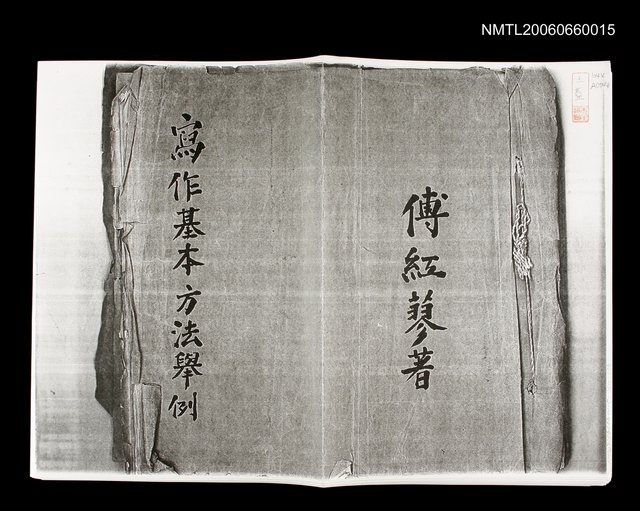 NMTL20060660015
傅紅蓼著
寫作基本方法舉例